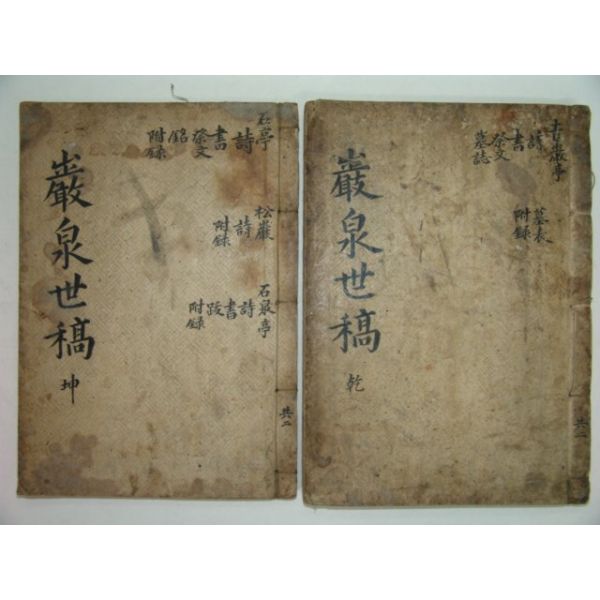 共二
巖亭
詩
書
祭文
墓誌
墓表
附録
巖泉世稿 乾
共二
石亭
詩
書
祭文
銘
附録
松巖
詩
附録
石泉亭
詩
書
跋
附録
巖泉世稿 坤